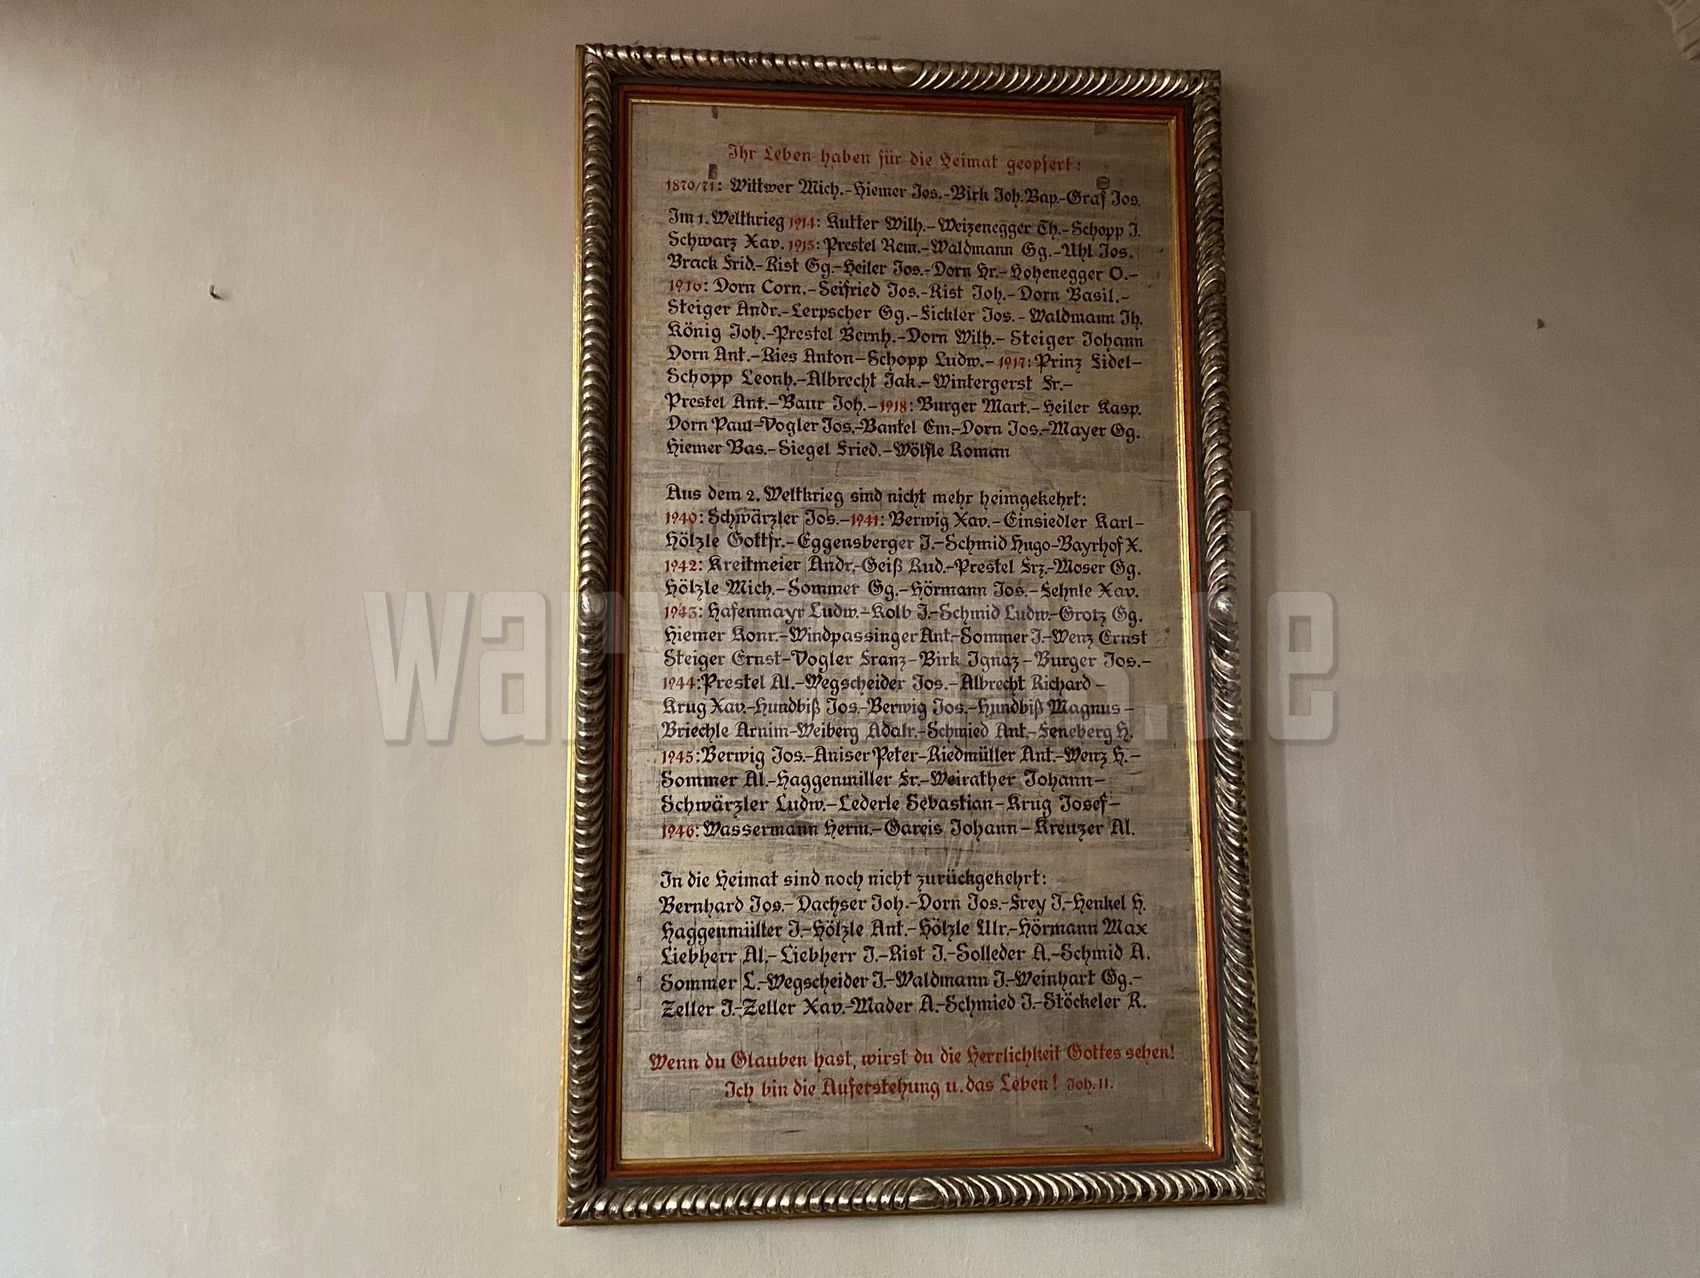 Ihr Leben haben für die Heimat geopfert:
1870/71: Wittwer Mich.-Hiemer Jos.-Birk Joh.Bap.-Graf Jos.
Im 1. Weltkrieg 1914: Kutter Wilh.-Weizenegger Th.-Schopp J.
Schwarz Xav. 1915: Prestel Rem.-Waldmann Gg.-Uhl Jos.
Brack Frid.-Rist Gg.-Heiler Jos.-Dorn Hr.-Hohenegger O.-
1916: Dorn Corn.-Seifried Jos.-Rist Joh.-Dorn Basil.-
Steiger Andr.-Lerpscher Gg.-Fickler Jos.-Waldmann Th.
König Joh.-Prestel Bernh.-Dorn Wilh.-Steiger Johann
Dorn Ant.-Ries Anton-Schopp Ludw.-1917: Prinz Fidel-
Schopp Leonh.-Albrecht Jak.-Wintergerst Fr.-
Prestel Ant.-Baur Joh.-1918: Burger Mart.-Heiler Kasp.
Dorn Paul-Vogler Jos.-Bantel Em.-Dorn Jos.-Mayer Gg.
Hiemer Bas.-Siegel Fried.-Wölfle Roman
Aus dem 2. Weltkrieg sind nicht mehr heimgekehrt:
1940: Schwärzler Jos.-1941: Berwig Xav.-Einsiedler Karl-
Hölzle Gottfr.-Eggensberger J.-Schmid Hugo-Bayrhof X.
1942: Kreitmeier Andr.-Geiß Rud.-Prestel Frz.-Moser Gg.
Hölzle Mich.-Sommer Gg.-Hörmann Jos.-Fehnle Xav.
1943: Hafenmayr Ludw.-Kolb J.-Schmid Ludw.-Grotz Gg.
Hiemer Konr.-Windpassinger Ant.-Sommer J.-Wenz Ernst
Steiger Ernst-Vogler Franz-Birk Ignaz-Burger Jos.-
1944: Prestel Al.-Wegscheider Jos.-Albrecht Richard-
Krug Xav.-Hundbiß Jos.-Berwig Jos.-Hundbiß Magnus-
Briechle Arnim-Weiberg Adalr.-Schmied Ant.-Feneberg H.
1945: Berwig Jos.-Aniser Peter-Riedmüller Ant.-Wenz H.-
Sommer Al.-Haggenmiller Fr.-Weirather Johann-
Schwärzler Ludw.-Lederle Sebastian-Krug Josef-
1946: Wassermann Herm.-Gareis Johann-Kreuzer Al.
In die Heimat sind noch nicht zurückgekehrt:
Bernhard Jos.-Dachser Joh.-Dorn Jos.-Frey J.-Henkel H.
Haggenmüller J.-Hölzle Ant.-Hölzle Ulr.-Hörmann Max
Liebherr Al.-Liebherr J.-Rist J.-Solleder A.-Schmid A.
Sommer L.-Wegscheider J.-Waldmann J.-Weinhart Gg.-
Zeller J.-Zeller Xav.-Mader A.-Schmied J.-Stöckeler R.
Wenn du Glauben hast, wirst du die Herrlichkeit Gottes sehen!
Ich bin die Auferstehung u. das Leben! Joh. 11.